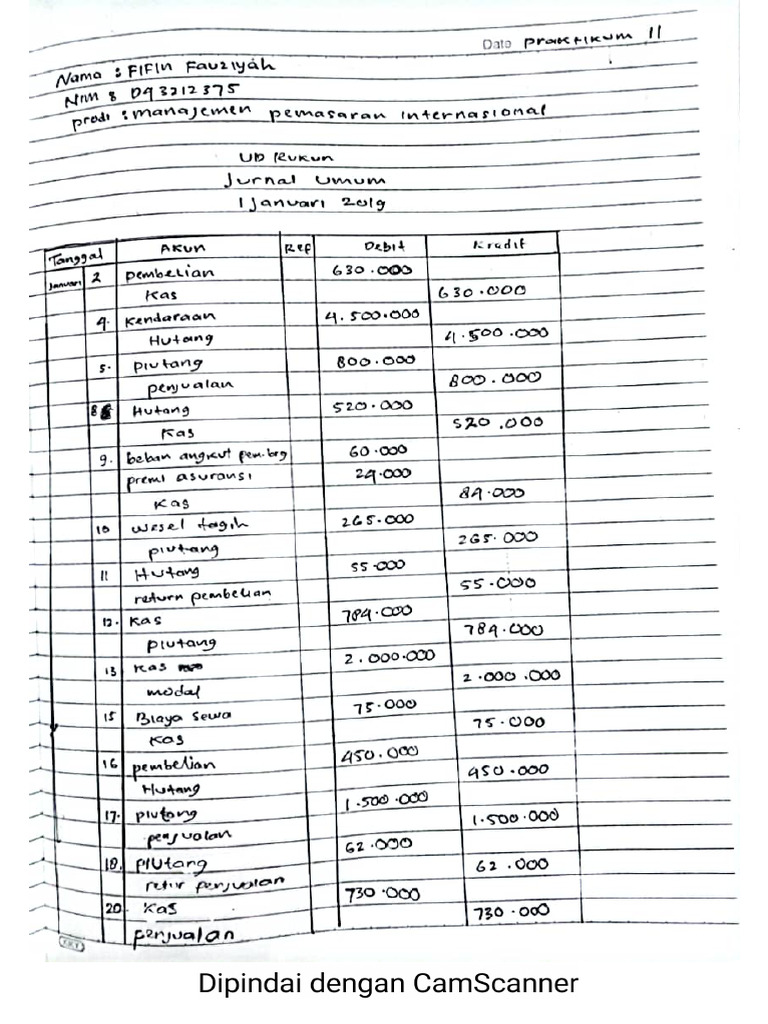 Date praktikum 11
Nama : FIFIN Fauziyah
NIM : 093212375
prodi : manajemen pemasaran internasional
UD Rukun
Jurnal umum
1 Januari 2019
Tanggal AKUN Ref Debit Kredit
Januari 2 pembelian 630.000
Kas 630.000
4. Kendaraan 4.500.000
Hutang 4.500.000
5. piutang 800.000
penjualan 800.000
8 Hutang 520.000
Kas 520.000
9. beban angkut pem.brg 60.000
premi asuransi 24.000
Kas 84.000
10 wesel tagih 265.000
piutang 265.000
11 Hutang 55.000
return pembelian 55.000
12. Kas 784.000
piutang 784.000
13 Kas 2.000.000
modal 2.000.000
15 Biaya sewa 75.000
Kas 75.000
16 pembelian 450.000
Hutang 450.000
17. piutang 1.500.000
penjualan 1.500.000
18. piutang 62.000
retur penjualan 62.000
20. Kas 730.000
penjualan 730.000
Dipindai dengan CamScanner